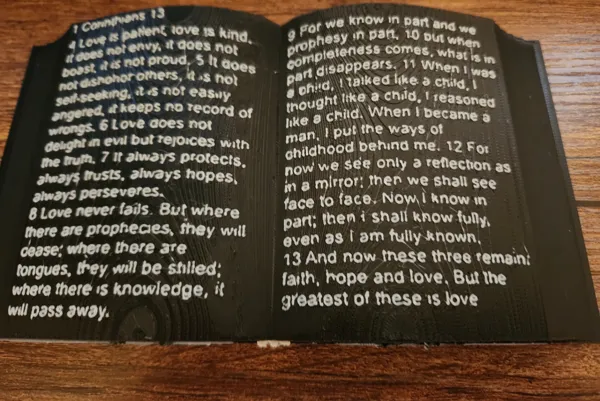 1 Corinthians 13
4 Love is patient, love is kind.
It does not envy, it does not
boast, it is not proud. 5 It does
not dishonor others, it is not
self-seeking, it is not easily
angered, it keeps no record of
wrongs. 6 Love does not
delight in evil but rejoices with
the truth. 7 It always protects,
always trusts, always hopes,
always perseveres.
8 Love never fails. But where
there are prophecies, they will
cease; where there are
tongues, they will be stilled;
where there is knowledge, it
will pass away.
9 For we know in part and we
prophesy in part, 10 but when
completeness comes, what is in
part disappears. 11 When I was
a child, I talked like a child, I
thought like a child, I reasoned
like a child. When I became a
man, I put the ways of
childhood behind me. 12 For
now we see only a reflection as
in a mirror; then we shall see
face to face. Now I know in
part; then I shall know fully,
even as I am fully known.
13 And now these three remain:
faith, hope and love. But the
greatest of these is love